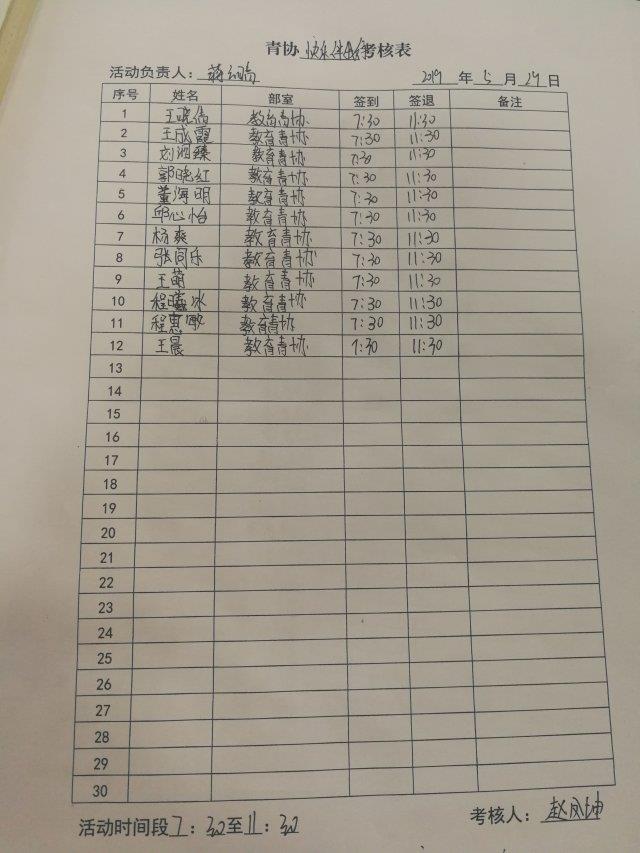 青协 快乐体验 考核表
活动负责人: 2019 年 5 月 29 日
序号 姓名 部室 签到 签退 备注
1 王晓倩 教育青协 7:30 11:30
2 王成霞 教育青协 7:30 11:30
3 刘泗臻 教育青协 7:30 11:30
4 郭晓红 教育青协 7:30 11:30
5 董海明 教育青协 7:30 11:30
6 邱心怡 教育青协 7:30 11:30
7 杨爽 教育青协 7:30 11:30
8 张同乐 教育青协 7:30 11:30
9 王萌 教育青协 7:30 11:30
10 程曦冰 教育青协 7:30 11:30
11 程惠敏 教育青协 7:30 11:30
12 王晨 教育青协 7:30 11:30
13
14
15
16
17
18
19
20
21
22
23
24
25
26
27
28
29
30
活动时间段 7:30至11:30 考核人: 赵凤坤